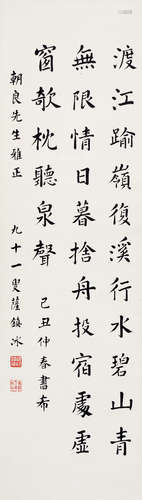 渡江踰嶺復溪行水碧山青
無限情日暮捨舟投宿處虛
窗欹枕聽泉聲 己丑仲春書希
朝良先生雅正 九十一叟薩鎮冰